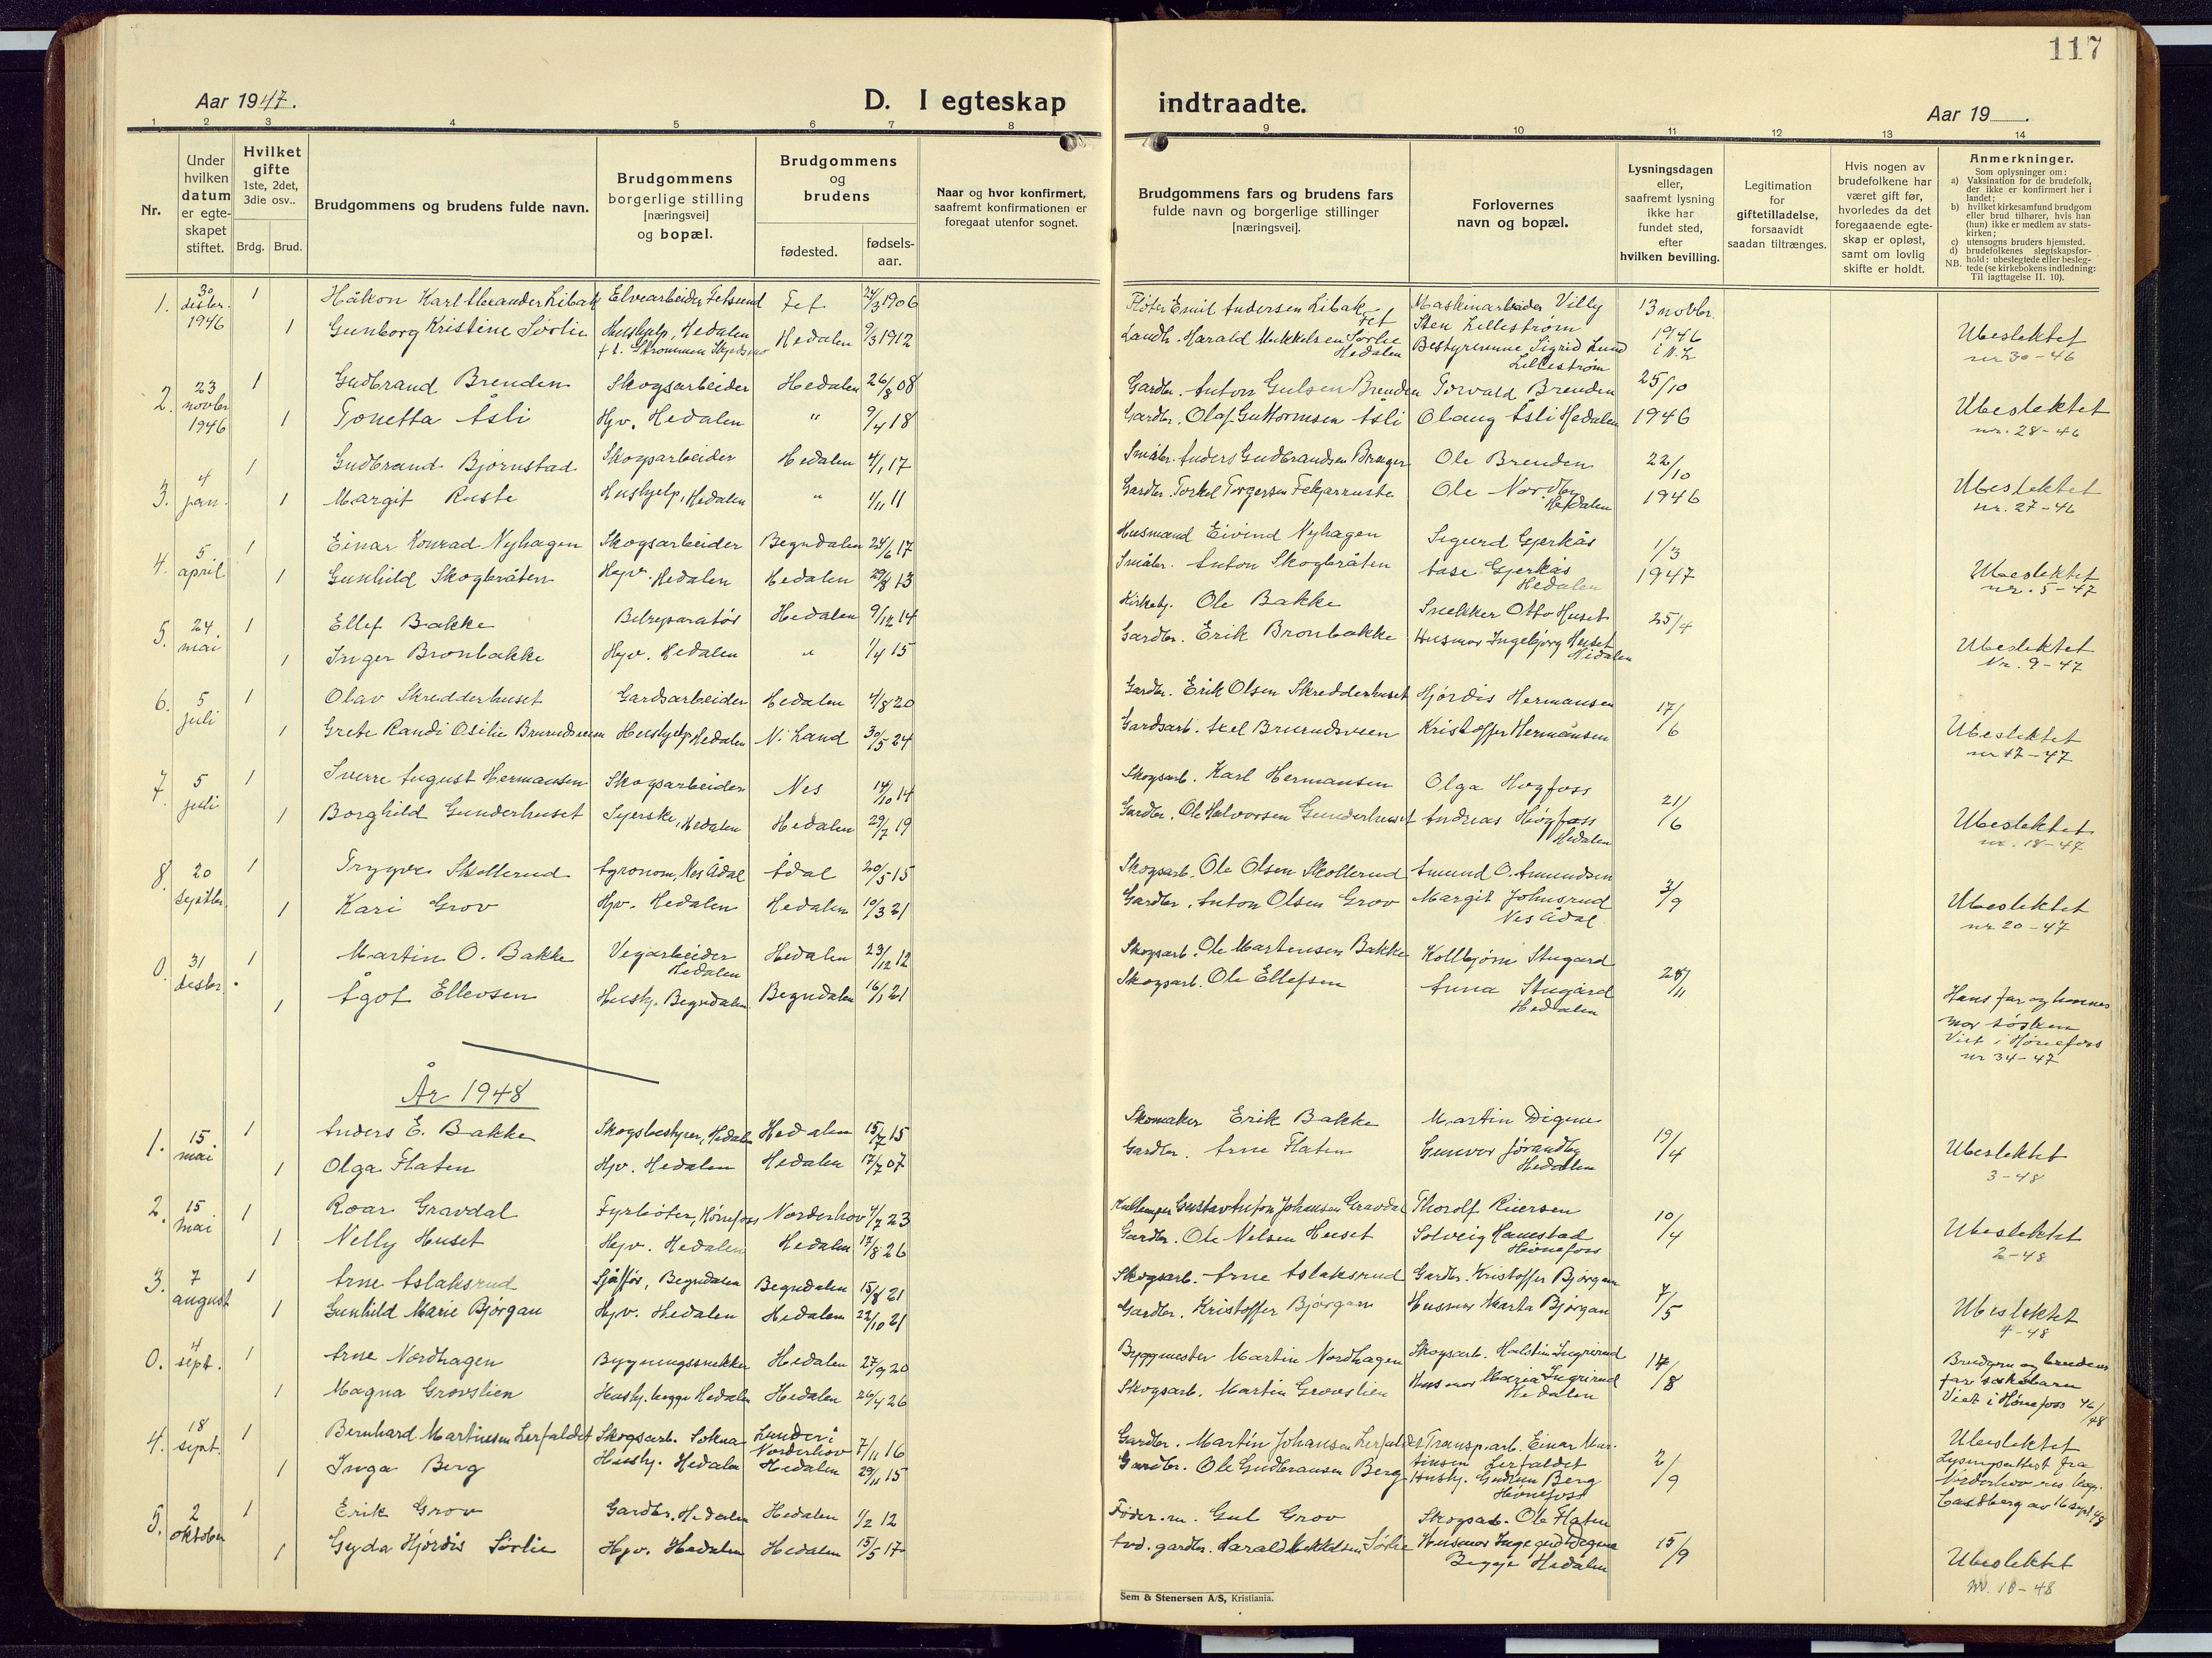 117
Aar 1947.
D. I egteskap indtraadte.
Aar 19 .
1 2 3 4 5 6 7 8 9 10 11 12 13 14
Nr.
Under hvilken datum er egte-skapet stiftet.
Hvilket gifte 1ste, 2det, 3die osv..
Brdg. Brud.
Brudgommens og brudens fulde navn.
Brudgommens borgerlige stilling [næringsvei] og bopæl.
Brudgommens og brudens
fødested.
fødsels-aar.
Naar og hvor konfirmert, saafremt konfirmationen er foregaat utenfor sognet.
Brudgommens fars og brudens fars fulde navn og borgerlige stillinger [næringsvei].
Forlovernes navn og bopæl.
Lysningsdagen eller, saafremt lysning ikke har fundet sted, efter hvilken bevilling.
Legitimation for giftetilladelse, forsaavidt saadan tiltrænges.
Hvis nogen av brudefolkene har været gift før, hvorledes da det foregaaende egte-skap er opløst, samt om lovlig skifte er holdt.
Anmerkninger.
Som oplysninger om:
a) Vaksination for de brudefolk, der ikke er konfirmert her i landet;
b) hvilket kirkesamfund brudgom eller brud tilhører, hvis han (hun) ikke er medlem av stats-kirken;
c) utensogns bruders hjemsted.
d) brudefolkenes slegtskapsfor-hold: ubeslegtede eller besleg-tede (se kirkebokens indledning: Til iagttagelse II. 10).
NB.
1. 30 desbr. 1946 1 Håkon Karl Alexander Libak Elvearbeider Fetsund Fet 24/3 1906 Fløter Emil Andersen Libak Fet Maskinarbeider Villy Sten Lillestrøm 13 novbr. 1946 i N. L Ubeslektet nr 30-46
1 Gunborg Kristine Sørlie Hushjelp, Hedalen f.t. Strømmen Hedalen 9/3 1912 Landh. Harald Mikkelsen Sørlie Hedalen Bestyrerinne Sigrid Lund Lillestrøm
2. 23 novbr 1946 1 Gudbrand Brenden Skogsarbeider Hedalen 26/8 08 Gardbr. Anton Gulsen Brenden Torvald Brenden 25/10 1946 Ubeslektet nr. 28-46
1 Tonetta Åsli Hjv. Hedalen " 9/4 18 Gardbr. Olaf Guttormsen Åsli Olaug Åsli Hedalen
3. 4 jan. 1 Gudbrand Bjørnstad Skogsarbeider Hedalen 4/1 17 Småbr. Anders Gudbrandsen Ole Brenden 22/10 1946 Ubeslektet nr. 27-46
1 Margit Ruste Hushjelp, Hedalen " 4/11 11 Gardbr. Torkel Torgersen Fekjarruste Ole Nordby Hedalen
4. 5 april 1 Einar Konrad Nyhagen Skogsarbeider Begndalen 24/6 17 Husmand Eivind Nyhagen Sigurd Gjerkås 1/3 1947 Ubeslektet nr. 5-47
1 Gunhild Skogbråten Hjv. Hedalen Hedalen 29/8 13 Småbr. Anton Skogbråten Aase Gjerkås Hedalen
5. 24. mai 1 Ellef Bakke Bilreparatør Hedalen 9/12 14 Kirketj. Ole Bakke Snekker Otto Huset 25/4 Ubeslektet Nr. 9-47
1 Inger Bronbakke Hjv. Hedalen " 1/4 15 Gardbr. Erik Bronbakke Husmor Ingebjørg Huset Hedalen
6. 5 juli 1 Olav Skredderhuset Gardsarbeider Hedalen 4/8 20 Gardbr. Erik Olsen Skredderhuset Hjørdis Hermansen 17/6 Ubeslektet nr 17-47
1 Grete Randi Osilie Hushjelp Hedalen N. Land 30/5 24 Gardsarb. Axel Kristoffer Hermansen
7. 5 juli 1 Sverre August Hermansen Skogsarbeider Nes 14/10 14 Skogsarb. Karl Hermansen Olga Høgfoss 21/6 Ubeslektet nr. 18-47
1 Borghild Gunderhuset Syerske, Hedalen Hedalen 29/7 19 Gardbr. Ole Halvorsen Gunderhuset Andreas Høgfoss Hedalen
8. 20 septbr. 1 Trygve Skollerud Agronom, Nes Ådal Ådal 20/5 15 Skogsarb. Ole Olsen Skollerud Amund O. Amundsen 3/9 Ubeslektet nr 20-47
1 Kari Grov Hjv. Hedalen Hedalen 10/3 21 Gardbr. Anton Olsen Grov Margit Johnsrud Nes Ådal
0. 31 desbr. 1 Martin O. Bakke Vegarbeider Hedalen Hedalen 23/12 12 Skogsarb. Ole Martensen Bakke Kollbjørn Stugard 28/11 Hans far og hennes mor søsken Viet i Hønefoss nr 34-47
1 Ågot Ellevsen Hushj. Begndalen Begndalen 16/1 21 Skogsarb. Ole Ellefsen Anna Stugård Hedalen
År 1948
1. 15. mai 1 Anders E. Bakke Skogsbestyrer, Hedalen Hedalen 15/7 15 Skomaker Erik Bakke Martin Digene 19/4 Ubeslektet 3-48
1 Olga Flaten Hjv. Hedalen Hedalen 17/7 07 Gardbr. Arne Flaten Gunvor Jørandby Hedalen
2. 15 mai 1 Roar Gravdal Fyrbøter, Hønefoss Norderhov 4/7 23 Gustav Anton Johansen Gravdal Thorolf Riersen 10/4 Ubeslektet 2-48
1 Nelly Huset Hjv. Hedalen Hedalen 17/8 26 Gardbr. Ole Nelsen Huset Solveig Hamstad Hønefoss
3. 7 august 1 Arne Aslaksrud Sjåfør, Begndalen Begndalen 15/8 21 Skogsarb. Arne Aslaksrud Gardbr. Kristoffer Bjørgan 7/5 Ubeslektet 4-48
1 Gunhild Marie Bjørgan Hjv. Hedalen Hedalen 22/10 21 Gardbr. Kristoffer Bjørgan Husmor Marta Bjørgan
0. 4 sept. 1 Arne Nordhagen Bygningssnekker Hedalen 27/9 20 Byggmester Martin Nordhagen Skogsarb. Halstin Ingrirud 14/8 Brudgom og brudens far søskebarn Viet i Hønefoss 46/48
1 Magna Grovslien Hushj. begge Hedalen Hedalen 26/4 26 Skogsarb. Martin Grovslien Husmor Maria Ingrirud Hedalen
4. 18 sept. 1 Bernhard Martinsen Lerfaldet Skogsarb. Sokna Lunder i Norderhov 7/11 16 Gardbr. Martin Johansen Lerfaldet Transp.arb. Einar Martinsen Lerfaldet 2/9 Ubeslektet Lysningsattest fra Norderhov av 16 sept 48
1 Inga Berg Hushj. Hedalen Hedalen 29/11 15 Gardbr. Ole Gudbransen Berg Hushj. Gudrun Berg Hønefoss
5. 2 oktober 1 Erik Grov Gardbr. Hedalen Hedalen 1/2 12 Gul Grov Skogsarb. Ole Flaten 15/9 Ubeslektet nr. 10-48
1 Gyda Hjørdis Sørlie Hjv. Hedalen Hedalen 15/5 17 gardbr. Harald Mikkelsen Sørlie Husmor Digene Begge Hedalen
Sem & Stenersen A/S, Kristiania.